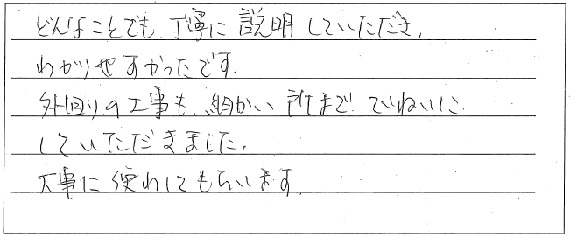 どんなことでも、丁寧に説明していただき、
わかりやすかったです。
外回りの工事も、細かい所までていねいに
していただきました。
大事に使わしてもらいます。